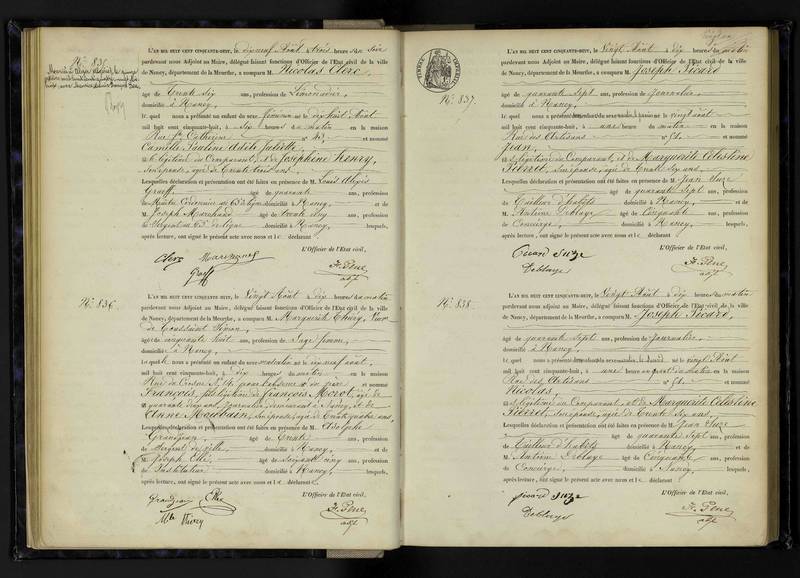 N.° 835.
L'AN MIL HUIT CENT CINQUANTE-HUIT, le dix neuf Août à trois heures du soir
pardevant nous Adjoint au Maire, délégué faisant fonctions d'Officier de l'Etat civil de la ville
de Nancy, département de la Meurthe, a comparu M. Nicolas Clerc,
âgé de trente six ans, profession de Limonadier,
domicilié à Nancy,
lequel nous a présenté un enfant du sexe féminin né le dix huit Août
mil huit cent cinquante-huit, à six heures du matin en la maison
Rue Ste Catherine n° 43, et nommé
Camille Pauline Adèle Juliette,
légitime du Comparant, et de Joséphine Henry,
son épouse, âgée de trente trois ans.
Lesquelles déclaration et présentation ont été faites en présence de M. Louis Alexis
Graeff âgé de quarante ans, profession
de Maître Cordonnier au 63e de ligne domicilié à Nancy, et de
M. Joseph Marchand âgé de trente cinq ans, profession
de Sergent au 63e de ligne domicilié à Nancy, lesquels,
après lecture, ont signé le présent acte avec nous et le déclarant
L'Officier de l'Etat civil,
Clerc Marchand
Graeff
adjt
N.° 836.
L'AN MIL HUIT CENT CINQUANTE-HUIT, le Vingt Août à dix heures du matin
pardevant nous Adjoint au Maire, délégué faisant fonctions d'Officier de l'Etat civil de la ville
de Nancy, département de la Meurthe, a comparu M. Marguerite Thiéry, Veuve
de Toussaint
âgée de cinquante huit ans, profession de Sage femme,
domiciliée à Nancy,
Laquelle nous a présenté un enfant du sexe masculin né le dix neuf août,
mil huit cent cinquante-huit, à dix heures du matin en la maison
et nommé
François, fils légitime de François Morot, âgé de
quarante ans, journalier, demeurant à Nancy, et de
Anne son épouse, âgée de trente quatre ans.
Lesquelles déclaration et présentation ont été faites en présence de M. Adolphe
Grandjean âgé de trente ans, profession
de Sergent de ville domicilié à Nancy, et de
M. Joseph âgé de soixante cinq ans, profession
de Instituteur domicilié à Nancy, lesquels,
après lecture, ont signé le présent acte avec nous et le déclarant
L'Officier de l'Etat civil,
Grandjean
Thiéry
adjt
N.° 837.
L'AN MIL HUIT CENT CINQUANTE-HUIT, le Vingt Août à dix heures du matin
pardevant nous Adjoint au Maire, délégué faisant fonctions d'Officier de l'Etat civil de la ville
de Nancy, département de la Meurthe, a comparu M. Joseph Picard
âgé de quarante sept ans, profession de Journalier,
domicilié à Nancy,
lequel nous a présenté un enfant du sexe masculin, né le vingt août
mil huit cent cinquante-huit, à une heure du matin en la maison
Rue des Artisans n° 51, et nommé
Jean,
légitime du Comparant, et de Marguerite Célestine
son épouse, âgée de trente six ans.
Lesquelles déclaration et présentation ont été faites en présence de M. Jean
âgé de quarante sept ans, profession
de Tailleur d'habits domicilié à Nancy, et de
M. Antoine Deblaye âgé de cinquante ans, profession
de Concierge, domicilié à Nancy, lesquels,
après lecture, ont signé le présent acte avec nous et le déclarant
L'Officier de l'Etat civil,
Picard
Deblaye
adjt
N.° 838.
L'AN MIL HUIT CENT CINQUANTE-HUIT, le Vingt Août à dix heures du matin
pardevant nous Adjoint au Maire, délégué faisant fonctions d'Officier de l'Etat civil de la ville
de Nancy, département de la Meurthe, a comparu M. Joseph Picard,
âgé de quarante sept ans, profession de Journalier,
domicilié à Nancy,
lequel nous a présenté un enfant du sexe masculin, né le vingt Août
mil huit cent cinquante-huit, à une heure du matin en la maison
Rue des Artisans n° 51, et nommé
Nicolas,
légitime du Comparant, et de Marguerite Célestine
son épouse, âgée de trente six ans.
Lesquelles déclaration et présentation ont été faites en présence de M. Jean
âgé de quarante sept ans, profession
de Tailleur d'habits domicilié à Nancy, et de
M. Antoine Deblaye âgé de cinquante ans, profession
de Concierge, domicilié à Nancy, lesquels,
après lecture, ont signé le présent acte avec nous et le déclarant
L'Officier de l'Etat civil,
Picard
Deblaye
adjt